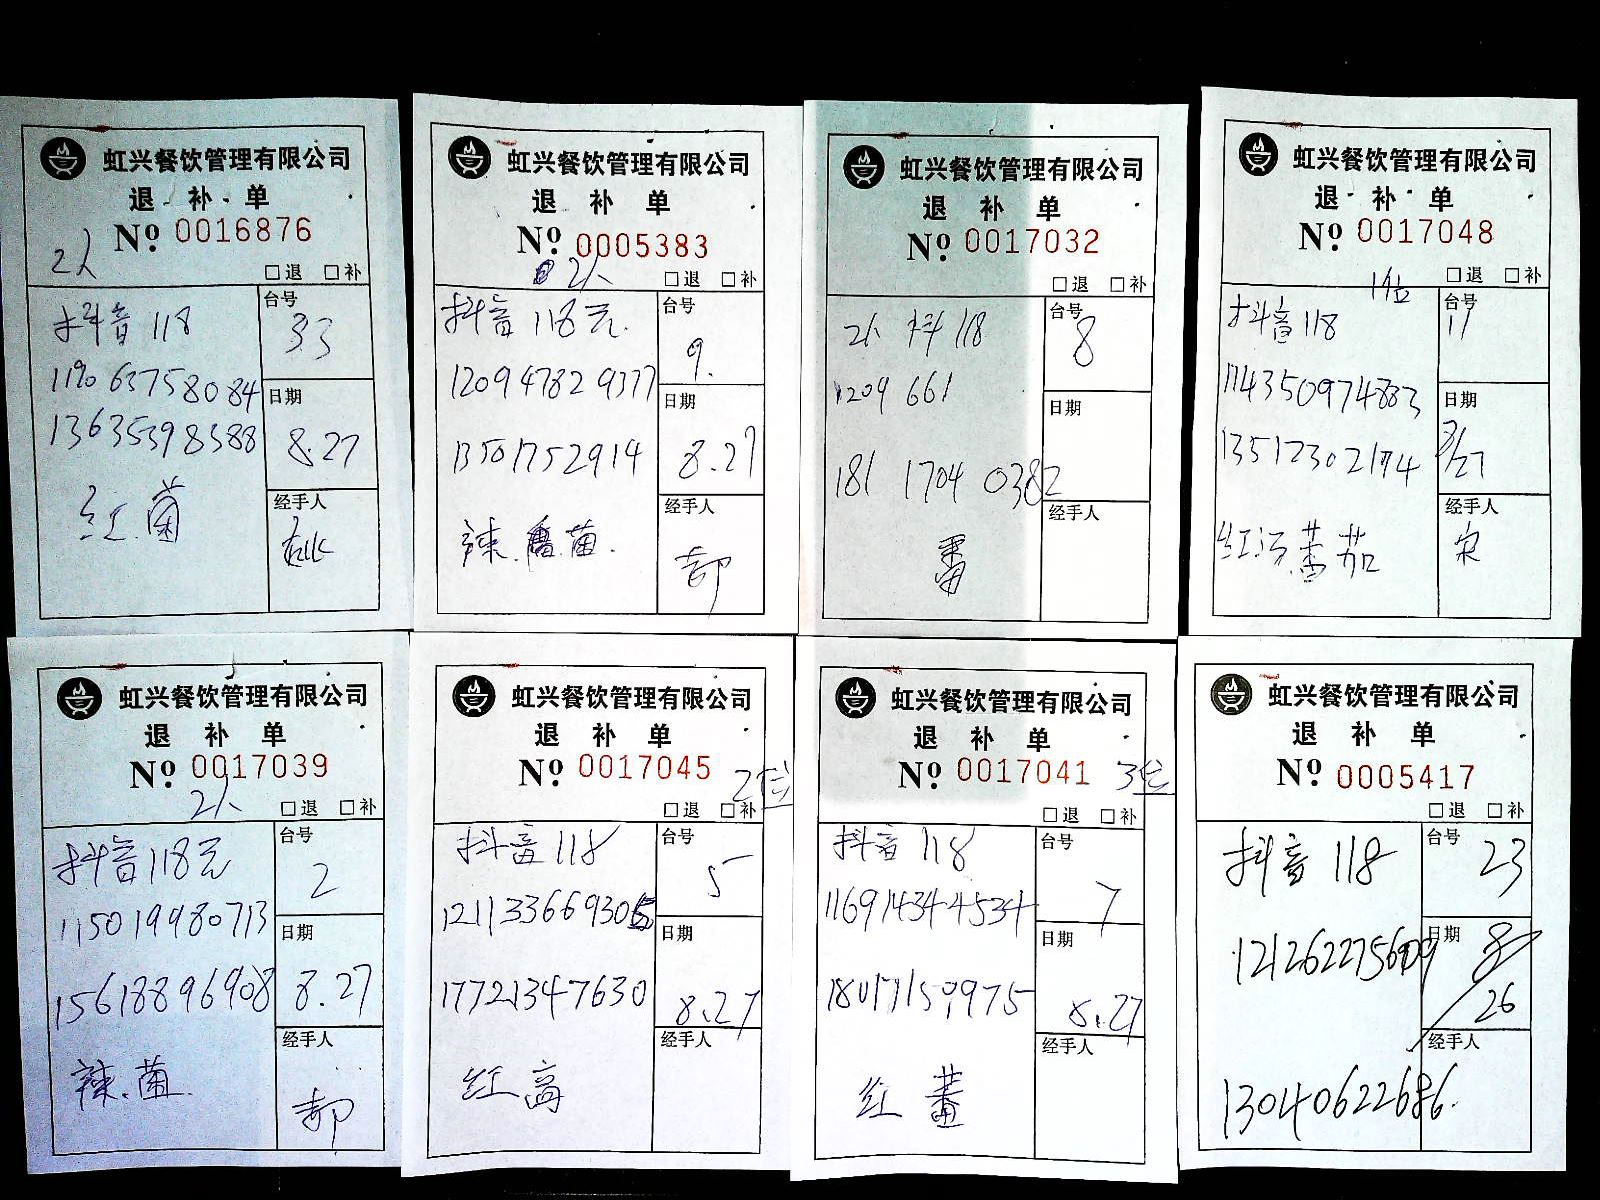 虹兴餐饮管理有限公司
退补单
№ 0016876
2人
□退 □补
抖音118
台号
33
119063758084
13635398588
日期
8.27
红.菌
经手人
虹兴餐饮管理有限公司
退补单
№ 0005383
2人
□退 □补
抖音118元.
台号
9.
120947829377
13501752914
日期
8.27
辣.菌.
经手人
郜
虹兴餐饮管理有限公司
退补单
№ 0017032
□退 □补
2人 抖118
台号
8
1209 661
日期
181 1704 0382
番
经手人
虹兴餐饮管理有限公司
退补单
№ 0017048
1位
□退 □补
抖音118
台号
11
114350974883
13512302174
日期
8/27
红汤番茄
经手人
宋
虹兴餐饮管理有限公司
退补单
№ 0017039
2人
□退 □补
抖音118元
台号
2
115019980713
15618896908
日期
8.27
辣.菌.
经手人
郜
虹兴餐饮管理有限公司
退补单
№ 0017045
2位
□退 □补
抖音118
台号
5
121133669305
17721347630
日期
8.27
红高
经手人
虹兴餐饮管理有限公司
退补单
№ 0017041
3位
□退 □补
抖音118
台号
7
116914344534
18017159975
日期
8.27
红 番
经手人
虹兴餐饮管理有限公司
退补单
№ 0005417
□退 □补
抖音118
台号
23
日期
8/26
经手人
13040622686.